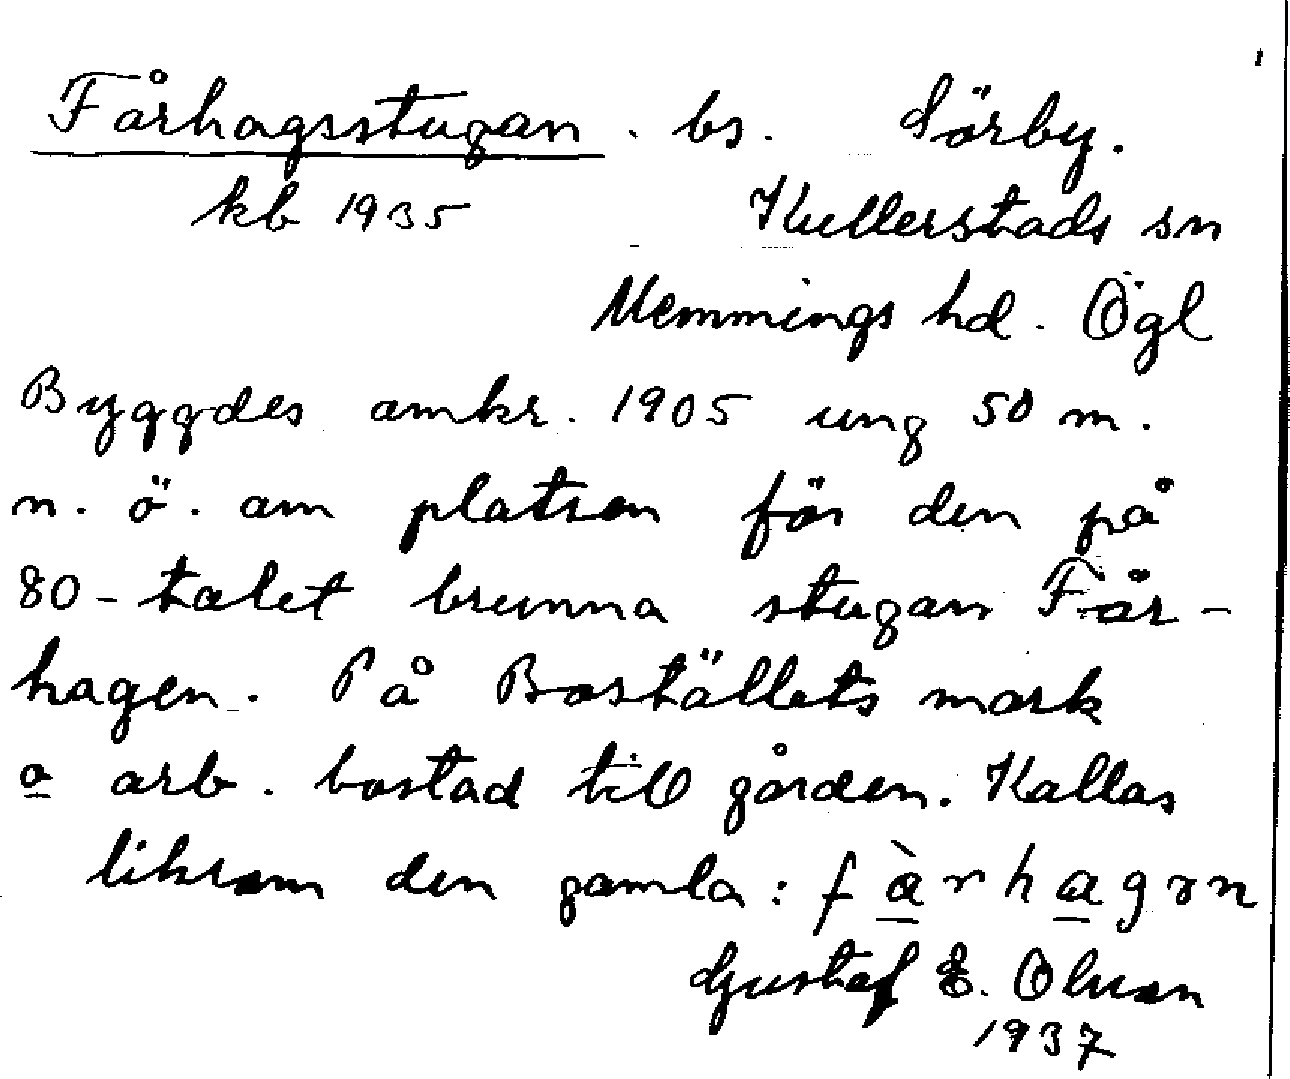 Fårhagsstugan. bs. Sörby.
kb 1935 Kullerstads sn
Memmings hd. Ögl
Byggdes omkr. 1905 ung 50 m.
n. ö. om platsen för den på
80-talet brunna stugan Får-
hagen. På Boställets mark
o arb. bostad till gården. Kallas
liksom den gamla: fàrhagɤn
Gustaf E. Olsson
1937